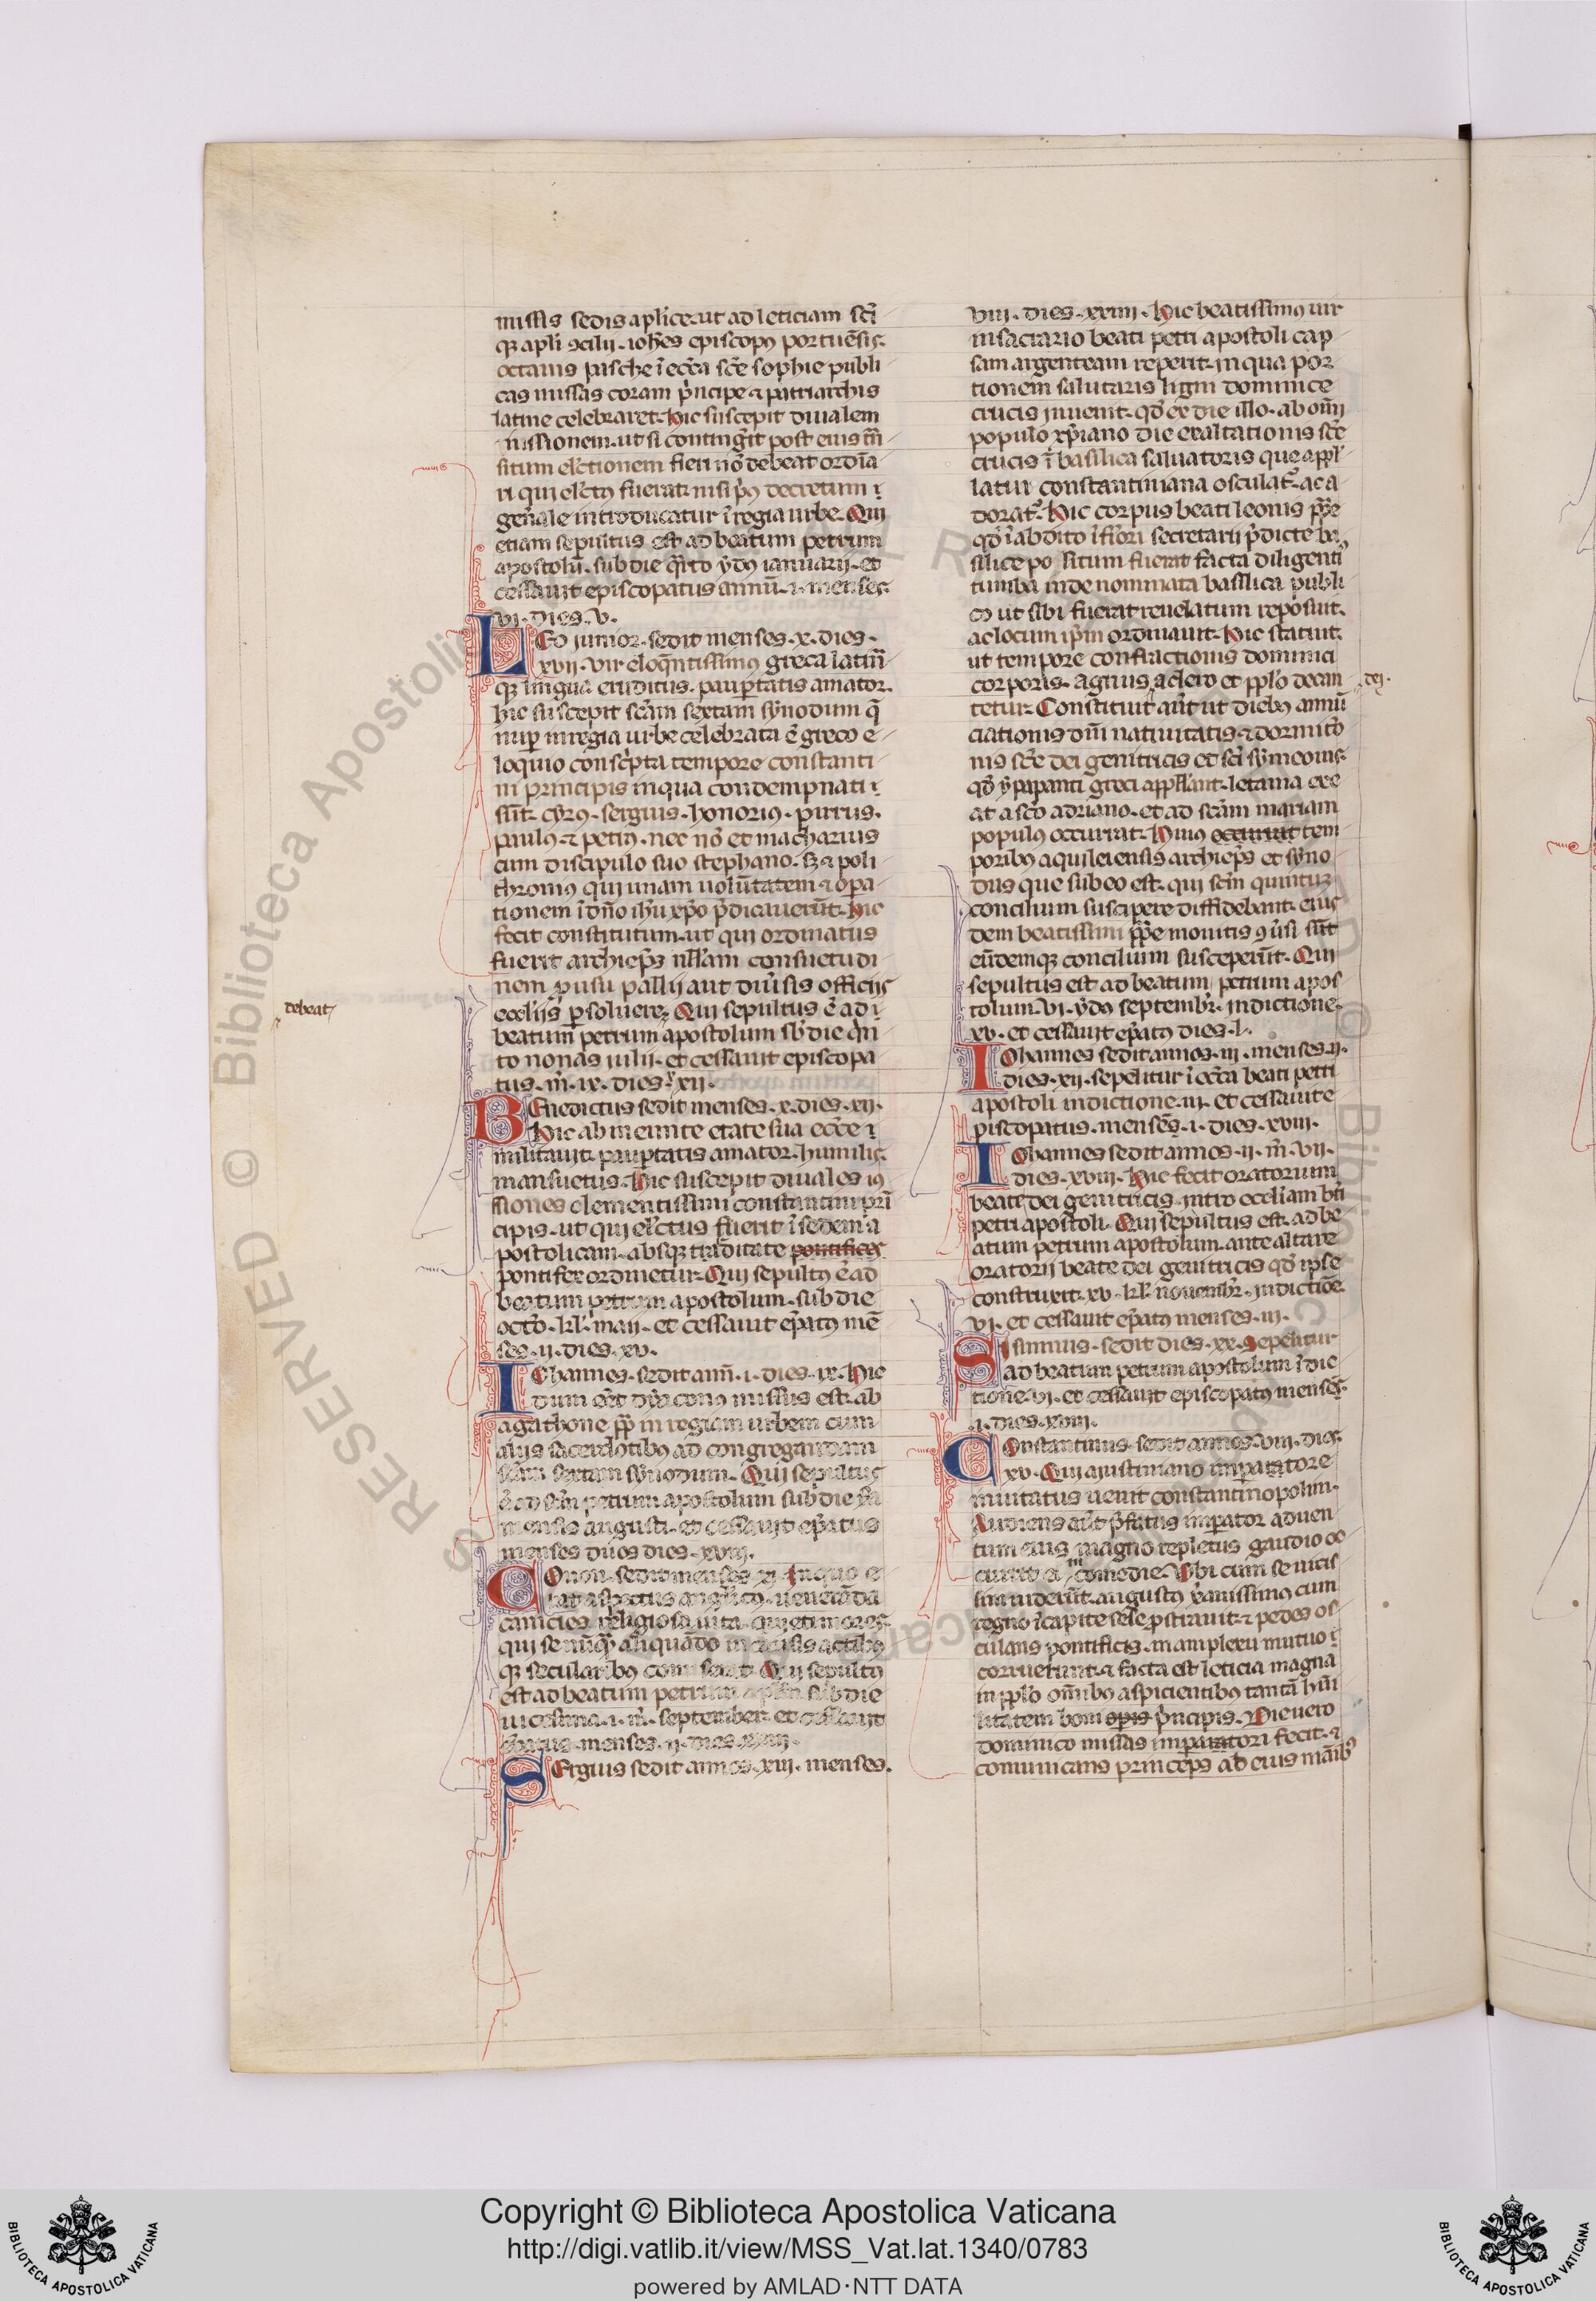 missis sedis aplice. ut ad leticiam sc̄i
q; apl̓i ꝯcilij. ioh̄es episcopus portuēsis.
octauis pasche ī ecc̄a sc̄e sophie publi
cas missas coram p̓ncipe ⁊ patriarchis
latine celebraret. Hic suscepit diualem
iussionem. ut si contingerit post eius trā
situm electionem fieri nō debeat ordīa
ri qui electus fuerat. nisi p̓us decretum ı
gen̄ale introducatur ī regia urbe. Qui
etiam sepultus est ad beatum petrum
apostolū. sub die qr̄to ydus ianuarij. et
cessauit episcopatus annū. ı. menses.
vj. dies. v.
LEo junior. sedit menses. x. dies.
xvij. vir eloquentissimus greca latin̄
q; lingua eruditus. paup̄tatis amator.
hic suscepit scām sextam synodum q̄
nup̄ in regia urbe celebrata ē greco e
loquio conscripta tempore constanti
ni principis in qua condempnati ı
sūt. cyrus. sergius. honorius. pirrus.
paulus. ⁊ petrus. nec nō et macharius
cum discipulo suo stephano. sz ⁊ poli
thronius qui unam uolūtatem ⁊ opa
tionem ī dn̄o ihu xp̄o p̄dicauerūt. Hic
fecit constitutum. ut qui ordinatus
fuerit archiep̄s nll̄am consuetudi
nem p̱ usu pallij aut diu̓sis officijs
eccl̄ijs p̱soluere. Qui sepultus ē ad ı
beatum petrum apostolum sb̓ die q̓n
to nonas iulii. et cessauit episcopa
tus. m̄. ix. dies. xxij.
debeat
BEnedictus sedit menses. x. dies. xij.
Hic ab ineunte etate sua ecc̄e ı
militauit. paup̱tatis amator. humilis.
mansuetus. Hic suscepit diuales ius
siones clementissimi constantini pri̅
cipis. ut qui electus fuerit ī sedem a
postolicam. absq; tarditate pontifices
pontifex ordinetur. Qui sepultus ē ad
beatum petrum apostolum. sub die
octō. kl̄. maij. et cessauit ep̄atus mē
ses. ij. dies. xv.
IOhannes. sedit ann̄. ı. dies. ıx. Hic
dum eēt dyaconus missus est. ab
agathone pp̄ in regiam urbem cum
alijs sacerdotibus ad congregandam
scām sextam synodum. Qui sepultus
ē ad scm̄ petrum apostolum sub die
mensis augusti. et cessauit ep̄atus
menses duos dies. xviij.
COnon. sedit menses. xj. In quo e
rat aspectus anglicus. ueneranda
canicies. religiosa uita. quieti mores.
qui se nūq̄ aliquādo in causis actibus
q; secularibus comiserat. Qui sepultus
est ad beatum petrum apl̄m sub die
uicesima. ı. m̄. september. et cessauit
ep̄atus menses. ij. dies. xxiij.
SErgius sedit annos. xiij. menses.
viij. dies. xxiiij. Hic beatissimus uir
in sacrario beati petri apostoli cap
sam argenteam reperit. in qua por
tionem salutaris ligni dominice
crucis inuenit. qd̓ ex die illo. ab om̄i
populo xp̄iano die exaltationis sc̄e
crucis ī basilica saluatoris que appl̓
latur constantiniana osculat̓. ac a
dorat̓. Hic corpus beati leonis pp̄e
qd̓ ī abdito īfiori secretarij p̄dicte ba
silice po situm fuerat facta diligenti
tumba inde nominata basilica publi
co ut sibi fuerat reuelatum reposuit.
ac locum ip̄m ordinauit. Hic statuit.
ut tempore confractionis dominici
corporis. agnus a clero et pplo decan
dej.
tetur. Constituit aūt ut diebus annū
ciationis dn̄i natiuitatis. ⁊ dormitō
nis sc̄e dei genitricis et sc̄i symeonis.
qd̓ ypapanti greci appllant. letania exe
at a sc̄o adriano. et ad scām mariam
populus occurrat. Huius occurrat tem
poribus aquileiensis archiep̄s et syno
dus que sub eo est. qui scm̄ quintuz
concilium suscipere diffidebant. eius
dem beatissimi pp̄e monitis ꝯuersi sūt
eūdemq; concilium susceperūt. Qui
sepultus est ad beatum petrum apos
tolum. vı. ydus septembr̄. indictione.
xv. et cessauit ep̄atus dies. l.
IOhannes sedit annos. iij. menses. ij.
dies. xij. sepelitur ī ecc̄a beati petri
apostoli indictione. iij. et cessauit e
piscopatus. mensē. ı. dies. xviij.
IOhannes sedit annos. ij. m̄. vij.
dies. xviij. Hic fecit oratorium
beate dei genitricis. intro eccl̄iam bt̄i
petri apostoli. Qui sepultus est. ad be
atum petrum apostolum. ante altare
oratorij beate dei genitricis qd̓ ipse
construxit. xv. kl̄. nouembr̄. indictiōe.
vj. et cessauit ep̄atus menses. iij.
SIsinnius. sedit dies. xx. Sepelitur
ad beatum petrum apostolum ī dic
tione. vj. et cessauit episcopatus menses.
ı. dies. xviij.
COnstantinus. sedit annos. viij. dies.
xv. Qui a iustiniano imperatore
inuitatus uenit constantinopolim.
Audiens aūt p̄fatus imperator aduen
tum eius magno repletus gaudio oc
currit a nicomedie. Vbi cum se uicis
sim uiderūt. augustus x̄anissimus cum
regno ī capite sese p̱strauit. ⁊ pedes os
culans pontificis. in amplexu mutuo ı
corruerunt. ⁊ facta est leticia magna
in pplo omibus aspicientibus tantā hūi
litatem boni opis p̓ncipis. Die uero
dominico missas imperatori fecit. ⁊
comunicans princeps ab eius manib;
Copyright © Biblioteca Apostolica Vaticana
http://digi.vatlib.it/view/MSS_Vat.lat.1340/0783
powered by AMLAD·NTT DATA
BIBLIOTECA APOSTOLICA VATICANA
BIBLIOTECA APOSTOLICA VATICANA